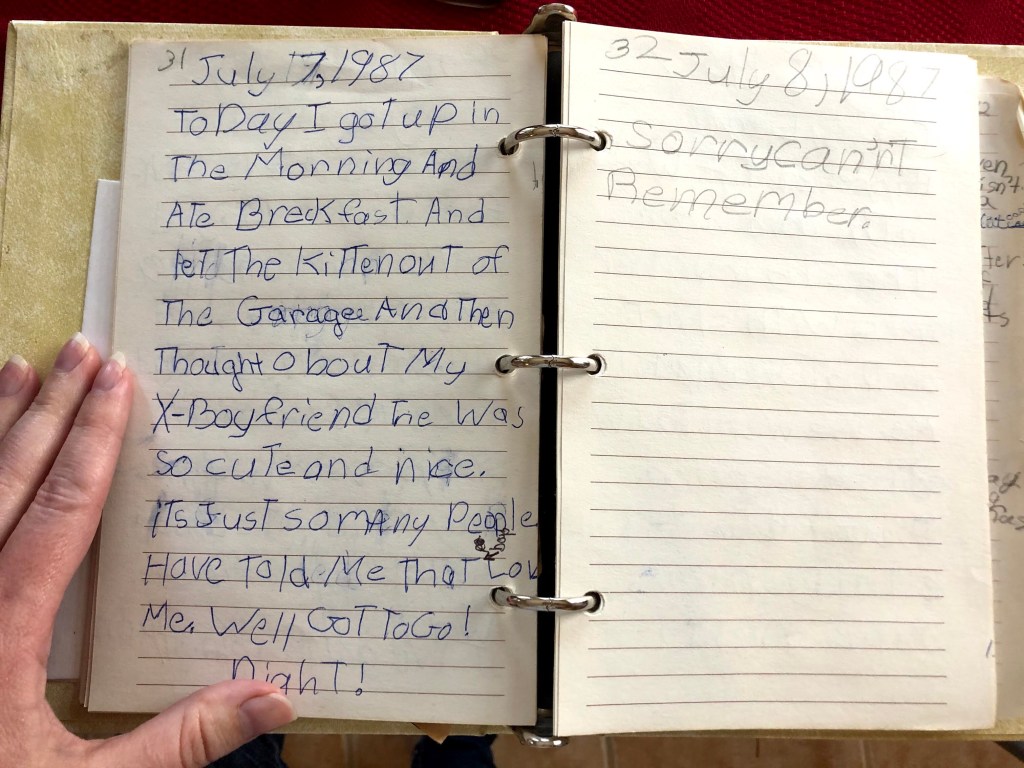 31 July 7, 1987
ToDay I got up in
The Morning And
Ate Breckfast And
let The kitten out of
The Garagee And Then
Thought about My
X-Boyfriend he was
so cute and nice.
its Just so many People
Have Told Me That Lov
Me. Well GoT To Go!
Night!
32 July 8, 1987
Sorry can'nt
Remember.